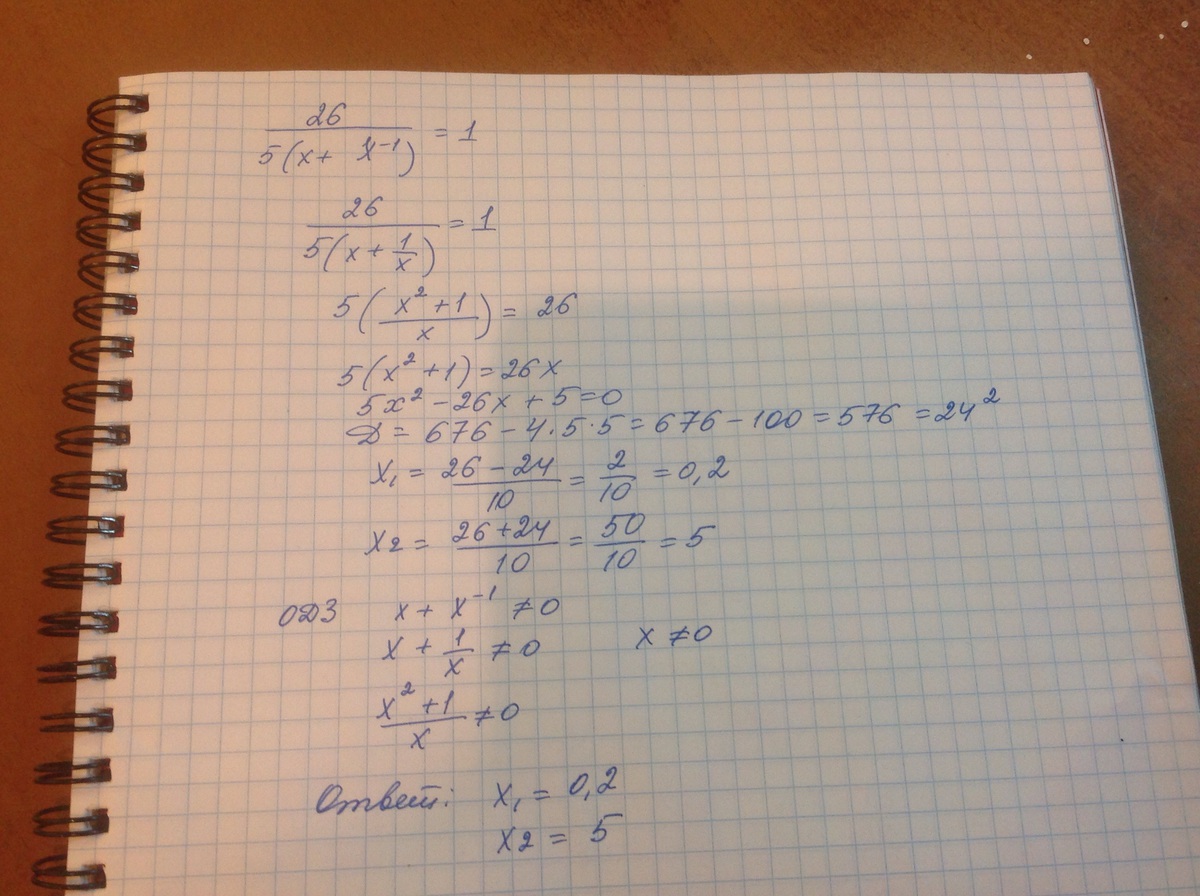 26/(5(x + x⁻¹)) = 1
26/(5(x + 1/x)) = 1
5((x² + 1)/x) = 26
5(x² + 1) = 26x
5x² - 26x + 5 = 0
D = 676 - 4·5·5 = 676 - 100 = 576 = 24²
x₁ = (26 - 24)/10 = 2/10 = 0,2
x₂ = (26 + 24)/10 = 50/10 = 5
ОДЗ x + x⁻¹ ≠ 0
x + 1/x ≠ 0 x ≠ 0
(x² + 1)/x ≠ 0
Ответ: x₁ = 0,2
x₂ = 5